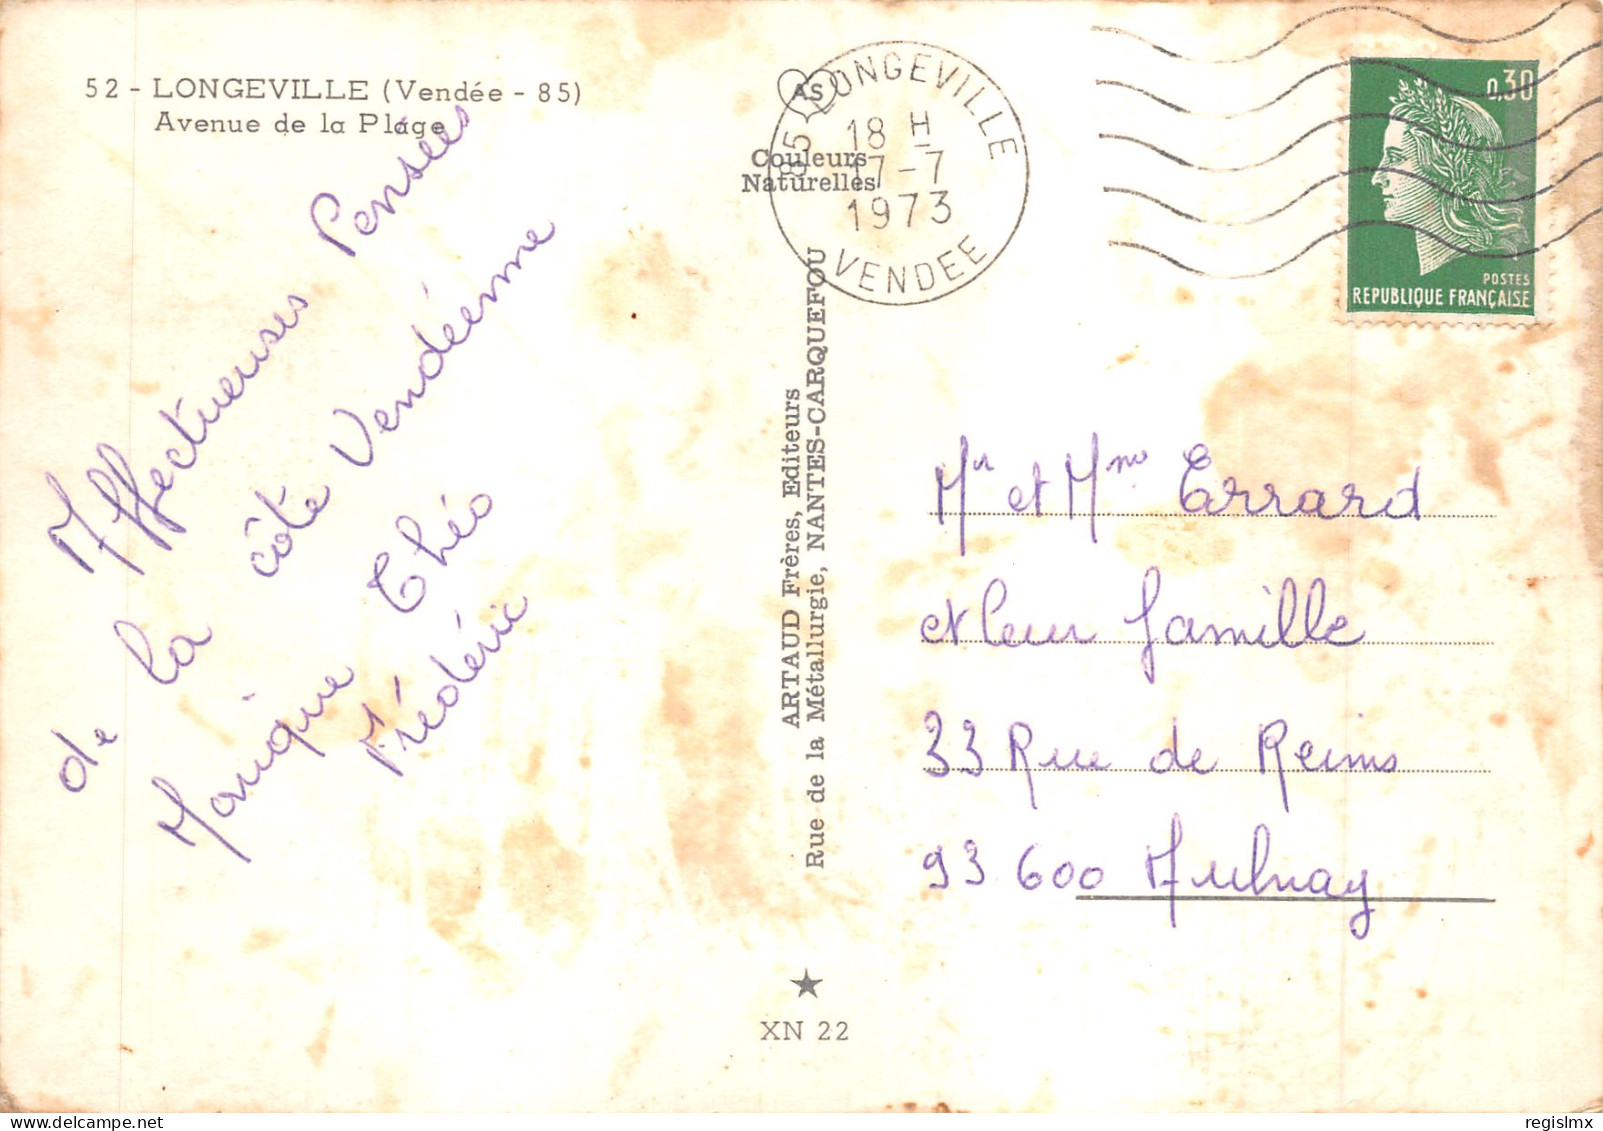 52 - LONGEVILLE (Vendée - 85)
Avenue de la Plage
Affectueuses Pensées
de la côte Vendéenne
Monique Théo
Frédéric
AS
Couleurs
Naturelles
85 LONGEVILLE
18 H
17-7
1973
VENDEE
0,30
POSTES
REPUBLIQUE FRANÇAISE
ARTAUD Frères, Editeurs
Rue de la Métallurgie, NANTES-CARQUEFOU
Mr et Mme Errard
et leur famille
33 Rue de Reims
93 600 Aulnay
XN 22
regislmx